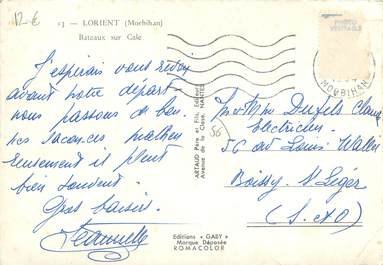 12 €
13 — LORIENT (Morbihan)
Bateaux sur Cale
J'espérais vous revoir
avant notre départ
nous passons de bon
nes vacances malheu
reusement il pleut
bien souvent.
Gros baisers.
ARTAUD Père et Fils, Editeurs
Avenue de la Close, NANTES
Editions « GABY »
Marque Déposée
ROMACOLOR
PHOTO
VERITABLE
MORBIHAN
Mr Mme Dufels Claude
Electricien
56
56 av Louis Wallon
Boissy St Léger
(S.&O)